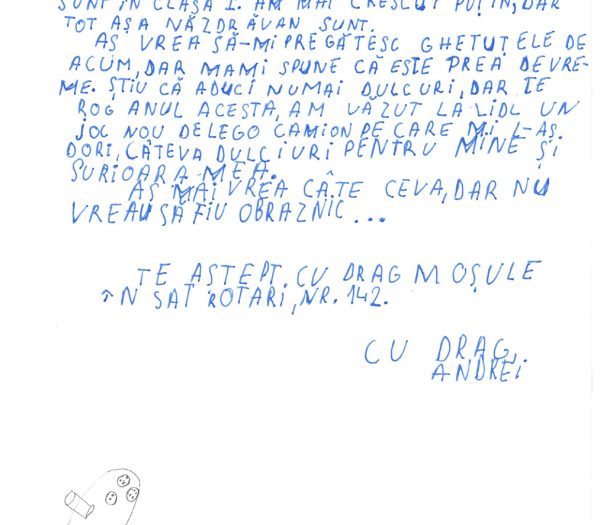 SUNT ÎN CLASA I. AM MAI CRESCUT PUȚIN, DAR
TOT AȘA NĂZDRĂVAN SUNT.
AȘ VREA SĂ-MI PREGĂTESC GHETUȚELE DE
ACUM, DAR MAMI SPUNE CĂ ESTE PREA DEVRE-
ME. ȘTIU CĂ ADUCI NUMAI DULCURI, DAR TE
ROG ANUL ACESTA, AM VĂZUT LA LIDL UN
JOC NOU DE LEGO CAMION PE CARE MI L-AȘ
DORI, CÂTEVA DULCIURI PENTRU MINE ȘI
SURIOARA MEA.
AȘ MAI VREA CÂTE CEVA, DAR NU
VREAU SĂ FIU OBRAZNIC...
TE AȘTEPT CU DRAG MOȘULE
ÎN SAT ROTARI, NR. 142.
CU DRAG,
ANDREI